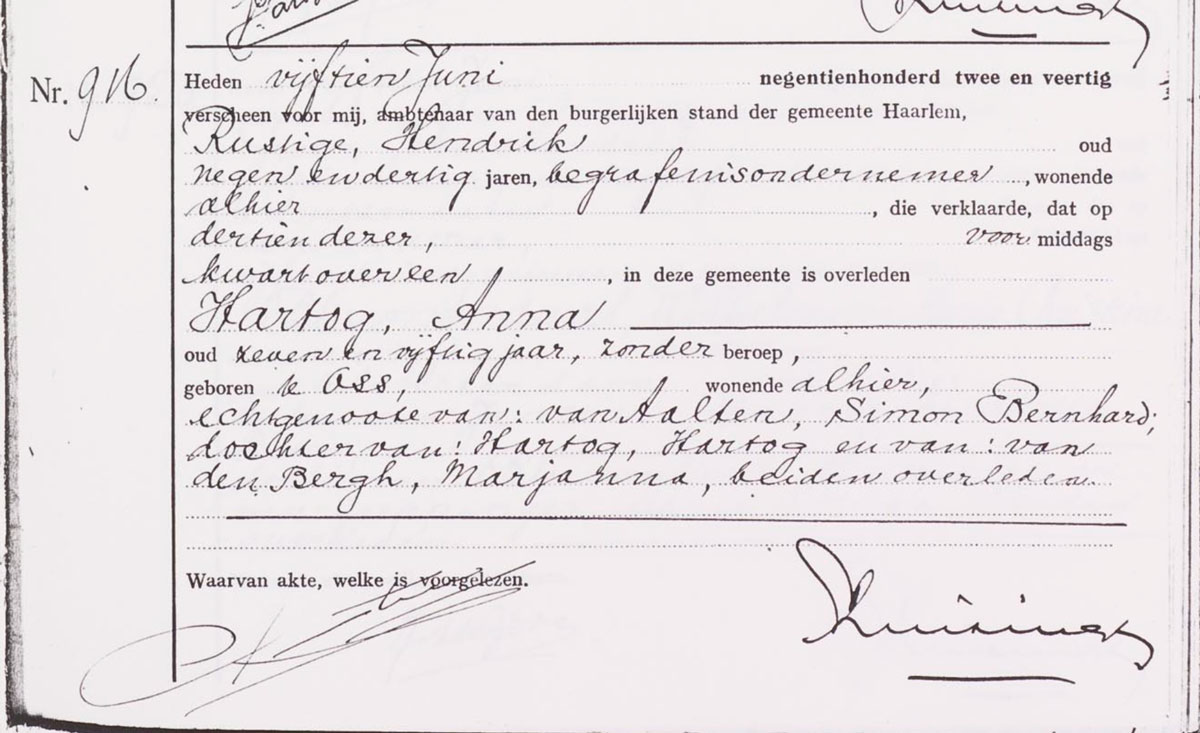 Nr. 916.
Heden vijftien Juni negentienhonderd twee en veertig
verscheen voor mij, ambtenaar van den burgerlijken stand der gemeente Haarlem,
Rustige, Hendrik oud
negen en dertig jaren, begrafenisondernemer, wonende
alhier, die verklaarde, dat op
dertien dezer, voor middags
kwart over een, in deze gemeente is overleden
Hartog, Anna
oud zeven en vijftig jaar, zonder beroep,
geboren te Oss, wonende alhier,
echtgenoote van: van Aalten, Simon Bernhard;
dochter van: Hartog, Hartog en van: van
den Bergh, Marjanna, beiden overleden.
Waarvan akte, welke is voorgelezen.